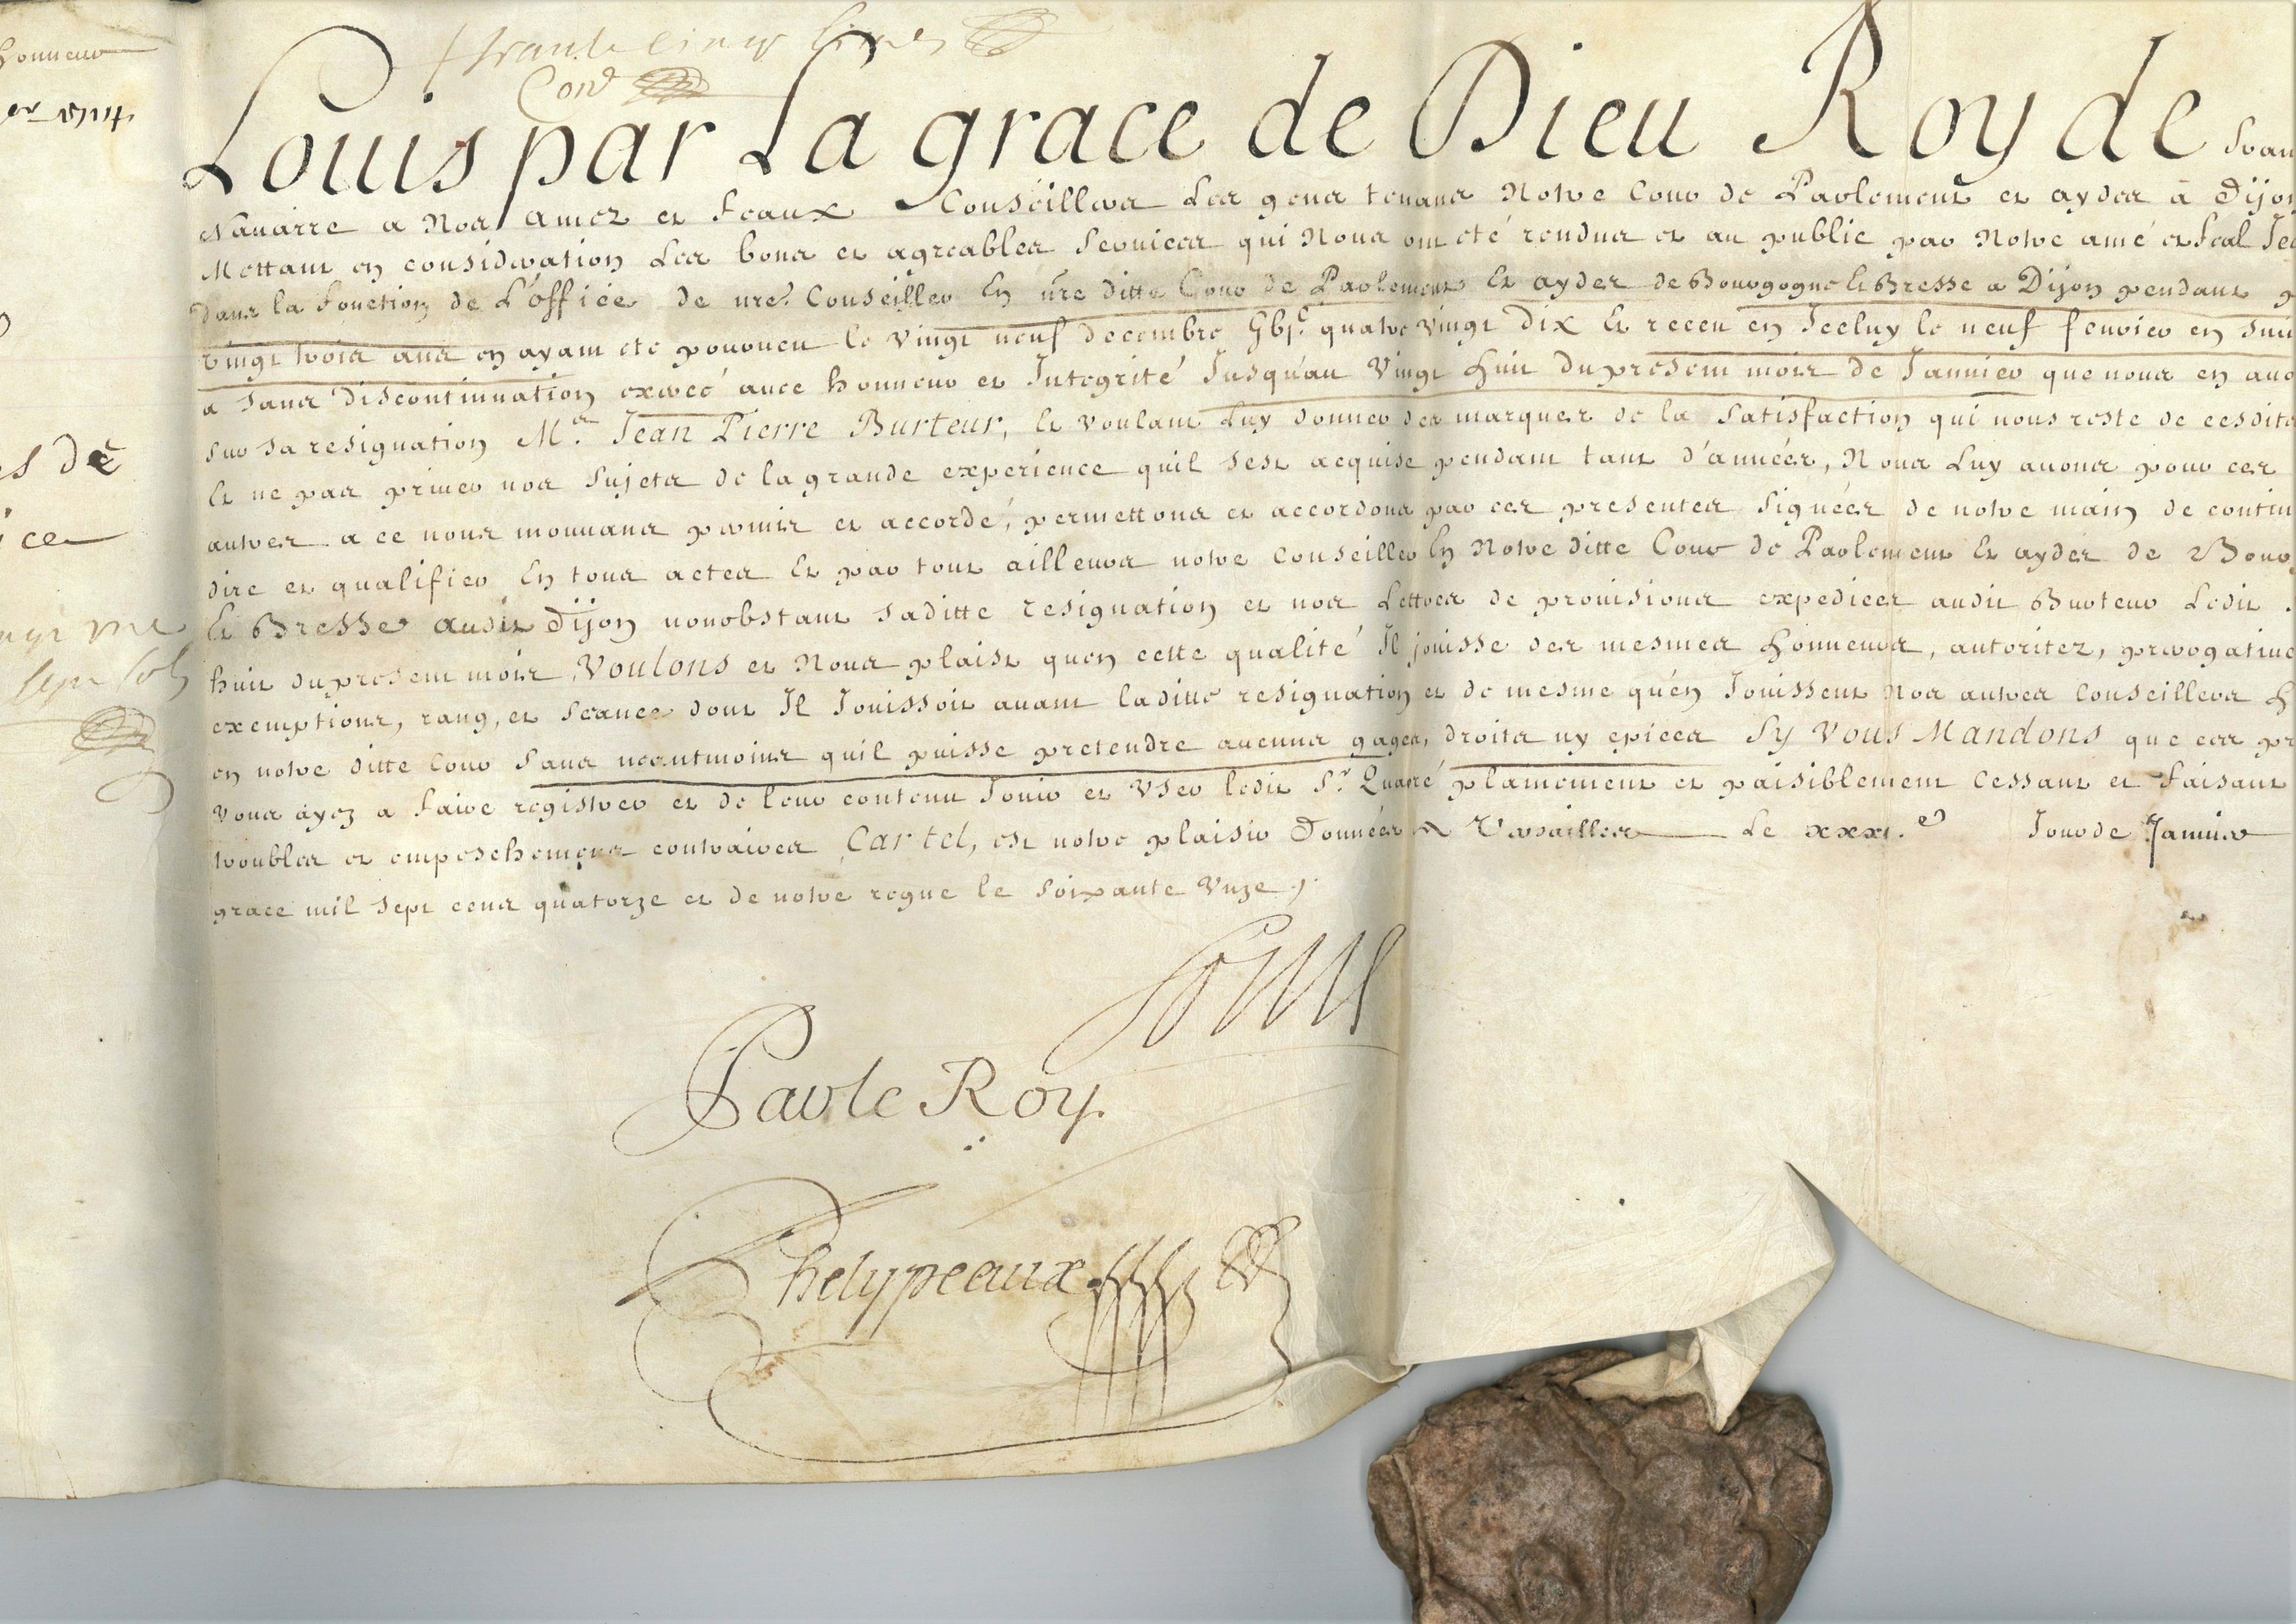 honneur
es de
ice
sept sols
trante cinq livres
Con.d
Louis par La grace de Dieu Roy de Fran
Navarre a Nos amez et feaux Conseillers Les gens tenans Notre Cour de Parlement et aydes à Dijon
Mettant en consideration Les bons et agreables services qui Nous ont eté rendus et au public par Notre amé et feal
Dans la fonction de L'office de nre. Conseiller En nre ditte Cour de Parlement Et aydes de Bourgogne Et Bresse a Dijon pendant
vingt trois ans en ayant ete pourveu le vingt neuf decembre Gbj.c quatre vingt dix Et receu en Iceluy le neuf fevrier en sui
a sans discontinuation exercé avec honneur et Integrité Jusqu'au Vingt huit du present mois de Janvier que nous en avo
sur sa resignation M.e Jean Pierre Burteur, Et voulant Luy donner des marques de la satisfaction qui nous reste de cesdits
Et ne pas priver nos sujets de la grande experience quil sest acquise pendant tant d'années, Nous Luy avons pour ces
autres a ce nous mouvans permis et accordé, permettons et accordons par ces presentes signées de notre main de contin
dire et qualifier En tous actes Et par tout ailleurs notre Conseiller En Notre ditte Cour de Parlement Et aydes de Bourg
Et Bresse audit Dijon nonobstant saditte resignation et nos Lettres de provisions expediees audit Burteur Ledit
huit du present mois, Voulons et Nous plaist quen cette qualité Il jouisse des mesmes honneurs, autoritez, prerogative
exemptions, rang, et seance dont Il Jouissoit avant laditte resignation et de mesme qu'en Jouissent Nos autres Conseillers h
en notre ditte Cour sans neantmoins quil puisse pretendre aucuns gages, droits ny epices Sy Vous Mandons que ces pr
vous ayez a faire registrer et de leur contenu Jouir et Vser ledit S.r Quarré plainement et paisiblement Cessant et faisant
troubles et empeschemens contraires, Car tel, est notre plaisir Données a Versailles Le xxxi.e Jour de Janvier
grace mil sept cens quatorze et de notre regne le soixante Unze ;.
Louis
Par le Roy.
Phelypeaux